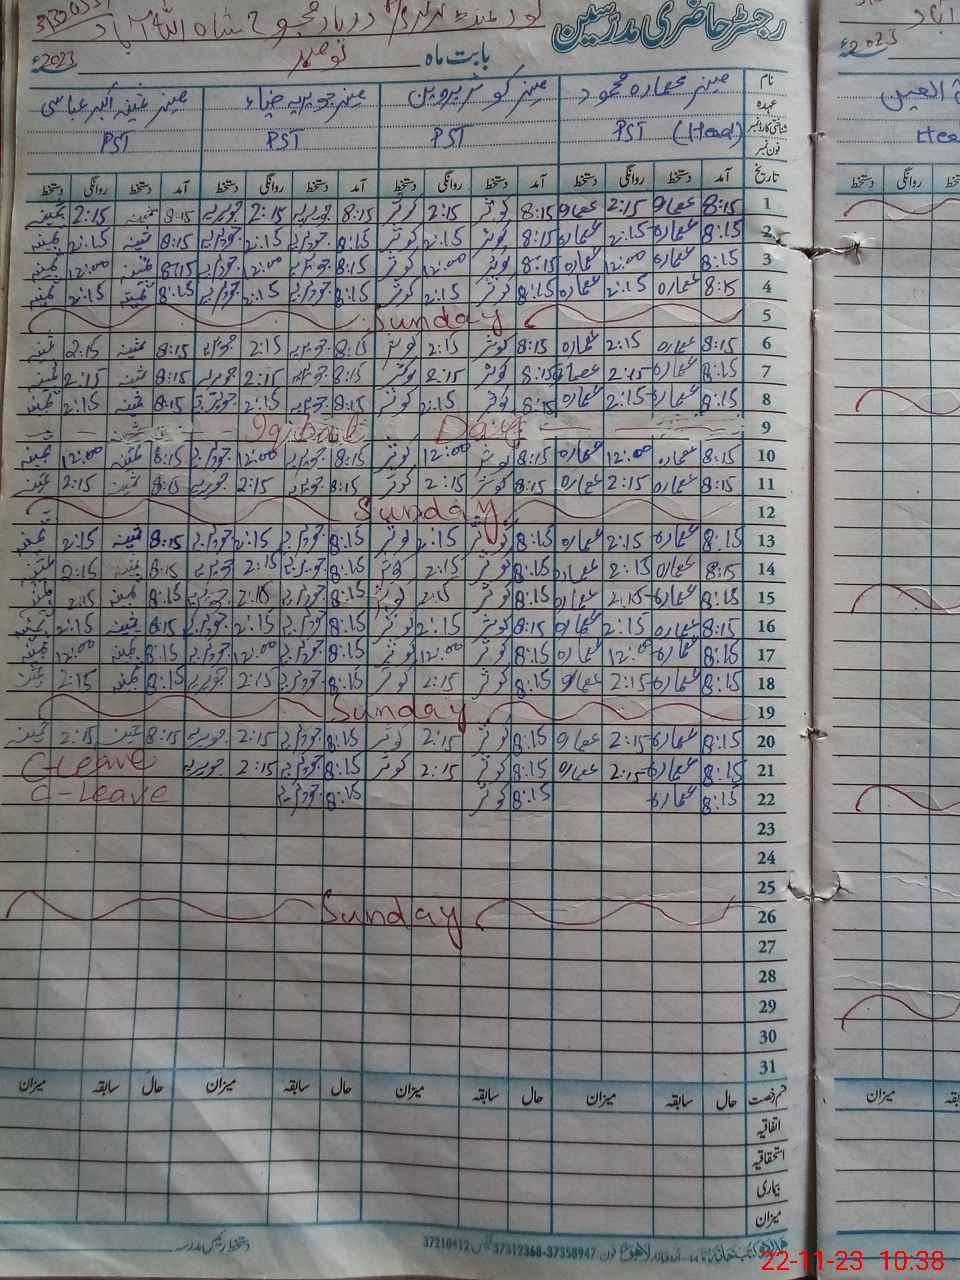 رجسٹر حاضری مدرسین
بابت ماہ نومبر 2023ء
نام مسز عمارہ محمود مسز کوثر پروین مسز جویریہ ضیاء مسز ثمینہ اکبر عباسی
عہدہ
شناختی کارڈ نمبر PST (Head) PST PST PST
فون نمبر
تاریخ آمد دستخط روانگی دستخط آمد دستخط روانگی دستخط آمد دستخط روانگی دستخط آمد دستخط روانگی دستخط
1 8:15 عمارہ 2:15 عمارہ 8:15 کوثر 2:15 کوثر 8:15 جویریہ 2:15 جویریہ 8:15 ثمینہ 2:15 ثمینہ
2 8:15 عمارہ 2:15 عمارہ 8:15 کوثر 2:15 کوثر 8:15 جویریہ 2:15 جویریہ 8:15 ثمینہ 2:15 ثمینہ
3 8:15 عمارہ 12:00 عمارہ 8:15 کوثر 12:00 کوثر 8:15 جویریہ 12:00 جویریہ 8:15 ثمینہ 12:00 ثمینہ
4 8:15 عمارہ 2:15 عمارہ 8:15 کوثر 2:15 کوثر 8:15 جویریہ 2:15 جویریہ 8:15 ثمینہ 2:15 ثمینہ
5 Sunday
6 8:15 عمارہ 2:15 عمارہ 8:15 کوثر 2:15 کوثر 8:15 جویریہ 2:15 جویریہ 8:15 ثمینہ 2:15 ثمینہ
7 8:15 عمارہ 2:15 عمارہ 8:15 کوثر 2:15 کوثر 8:15 جویریہ 2:15 جویریہ 8:15 ثمینہ 2:15 ثمینہ
8 8:15 عمارہ 2:15 عمارہ 8:15 کوثر 2:15 کوثر 8:15 جویریہ 2:15 جویریہ 8:15 ثمینہ 2:15 ثمینہ
9 Iqbal Day
10 8:15 عمارہ 12:00 عمارہ 8:15 کوثر 12:00 کوثر 8:15 جویریہ 12:00 جویریہ 8:15 ثمینہ 12:00 ثمینہ
11 8:15 عمارہ 2:15 عمارہ 8:15 کوثر 2:15 کوثر 8:15 جویریہ 2:15 جویریہ 8:15 ثمینہ 2:15 ثمینہ
12 Sunday
13 8:15 عمارہ 2:15 عمارہ 8:15 کوثر 2:15 کوثر 8:15 جویریہ 2:15 جویریہ 8:15 ثمینہ 2:15 ثمینہ
14 8:15 عمارہ 2:15 عمارہ 8:15 کوثر 2:15 کوثر 8:15 جویریہ 2:15 جویریہ 8:15 ثمینہ 2:15 ثمینہ
15 8:15 عمارہ 2:15 عمارہ 8:15 کوثر 2:15 کوثر 8:15 جویریہ 2:15 جویریہ 8:15 ثمینہ 2:15 ثمینہ
16 8:15 عمارہ 2:15 عمارہ 8:15 کوثر 2:15 کوثر 8:15 جویریہ 2:15 جویریہ 8:15 ثمینہ 2:15 ثمینہ
17 8:15 عمارہ 12:00 عمارہ 8:15 کوثر 12:00 کوثر 8:15 جویریہ 12:00 جویریہ 8:15 ثمینہ 12:00 ثمینہ
18 8:15 عمارہ 2:15 عمارہ 8:15 کوثر 2:15 کوثر 8:15 جویریہ 2:15 جویریہ 8:15 ثمینہ 2:15 ثمینہ
19 Sunday
20 8:15 عمارہ 2:15 عمارہ 8:15 کوثر 2:15 کوثر 8:15 جویریہ 2:15 جویریہ 8:15 ثمینہ 2:15 ثمینہ
21 8:15 عمارہ 2:15 عمارہ 8:15 کوثر 2:15 کوثر 8:15 جویریہ 2:15 جویریہ C-Leave
22 8:15 عمارہ 8:15 کوثر 8:15 جویریہ C-Leave
23
24
25
26 Sunday
27
28
29
30
31
قسم رخصت حال سابقہ میزان حال سابقہ میزان حال سابقہ میزان حال سابقہ میزان
اتفاقیہ
استحقاقیہ
بیماری
میزان
لاہور فون 37358947-37312368 فیکس 37210412 دستخط رئیس مدرسہ
22-11-23 10:38
2023ء
Hea
دستخط روانگی دستخط
میزان سابقہ